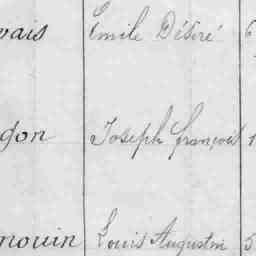 vais Emile Désiré 6
gon Joseph françois 1
nouin Louis Augustin 5